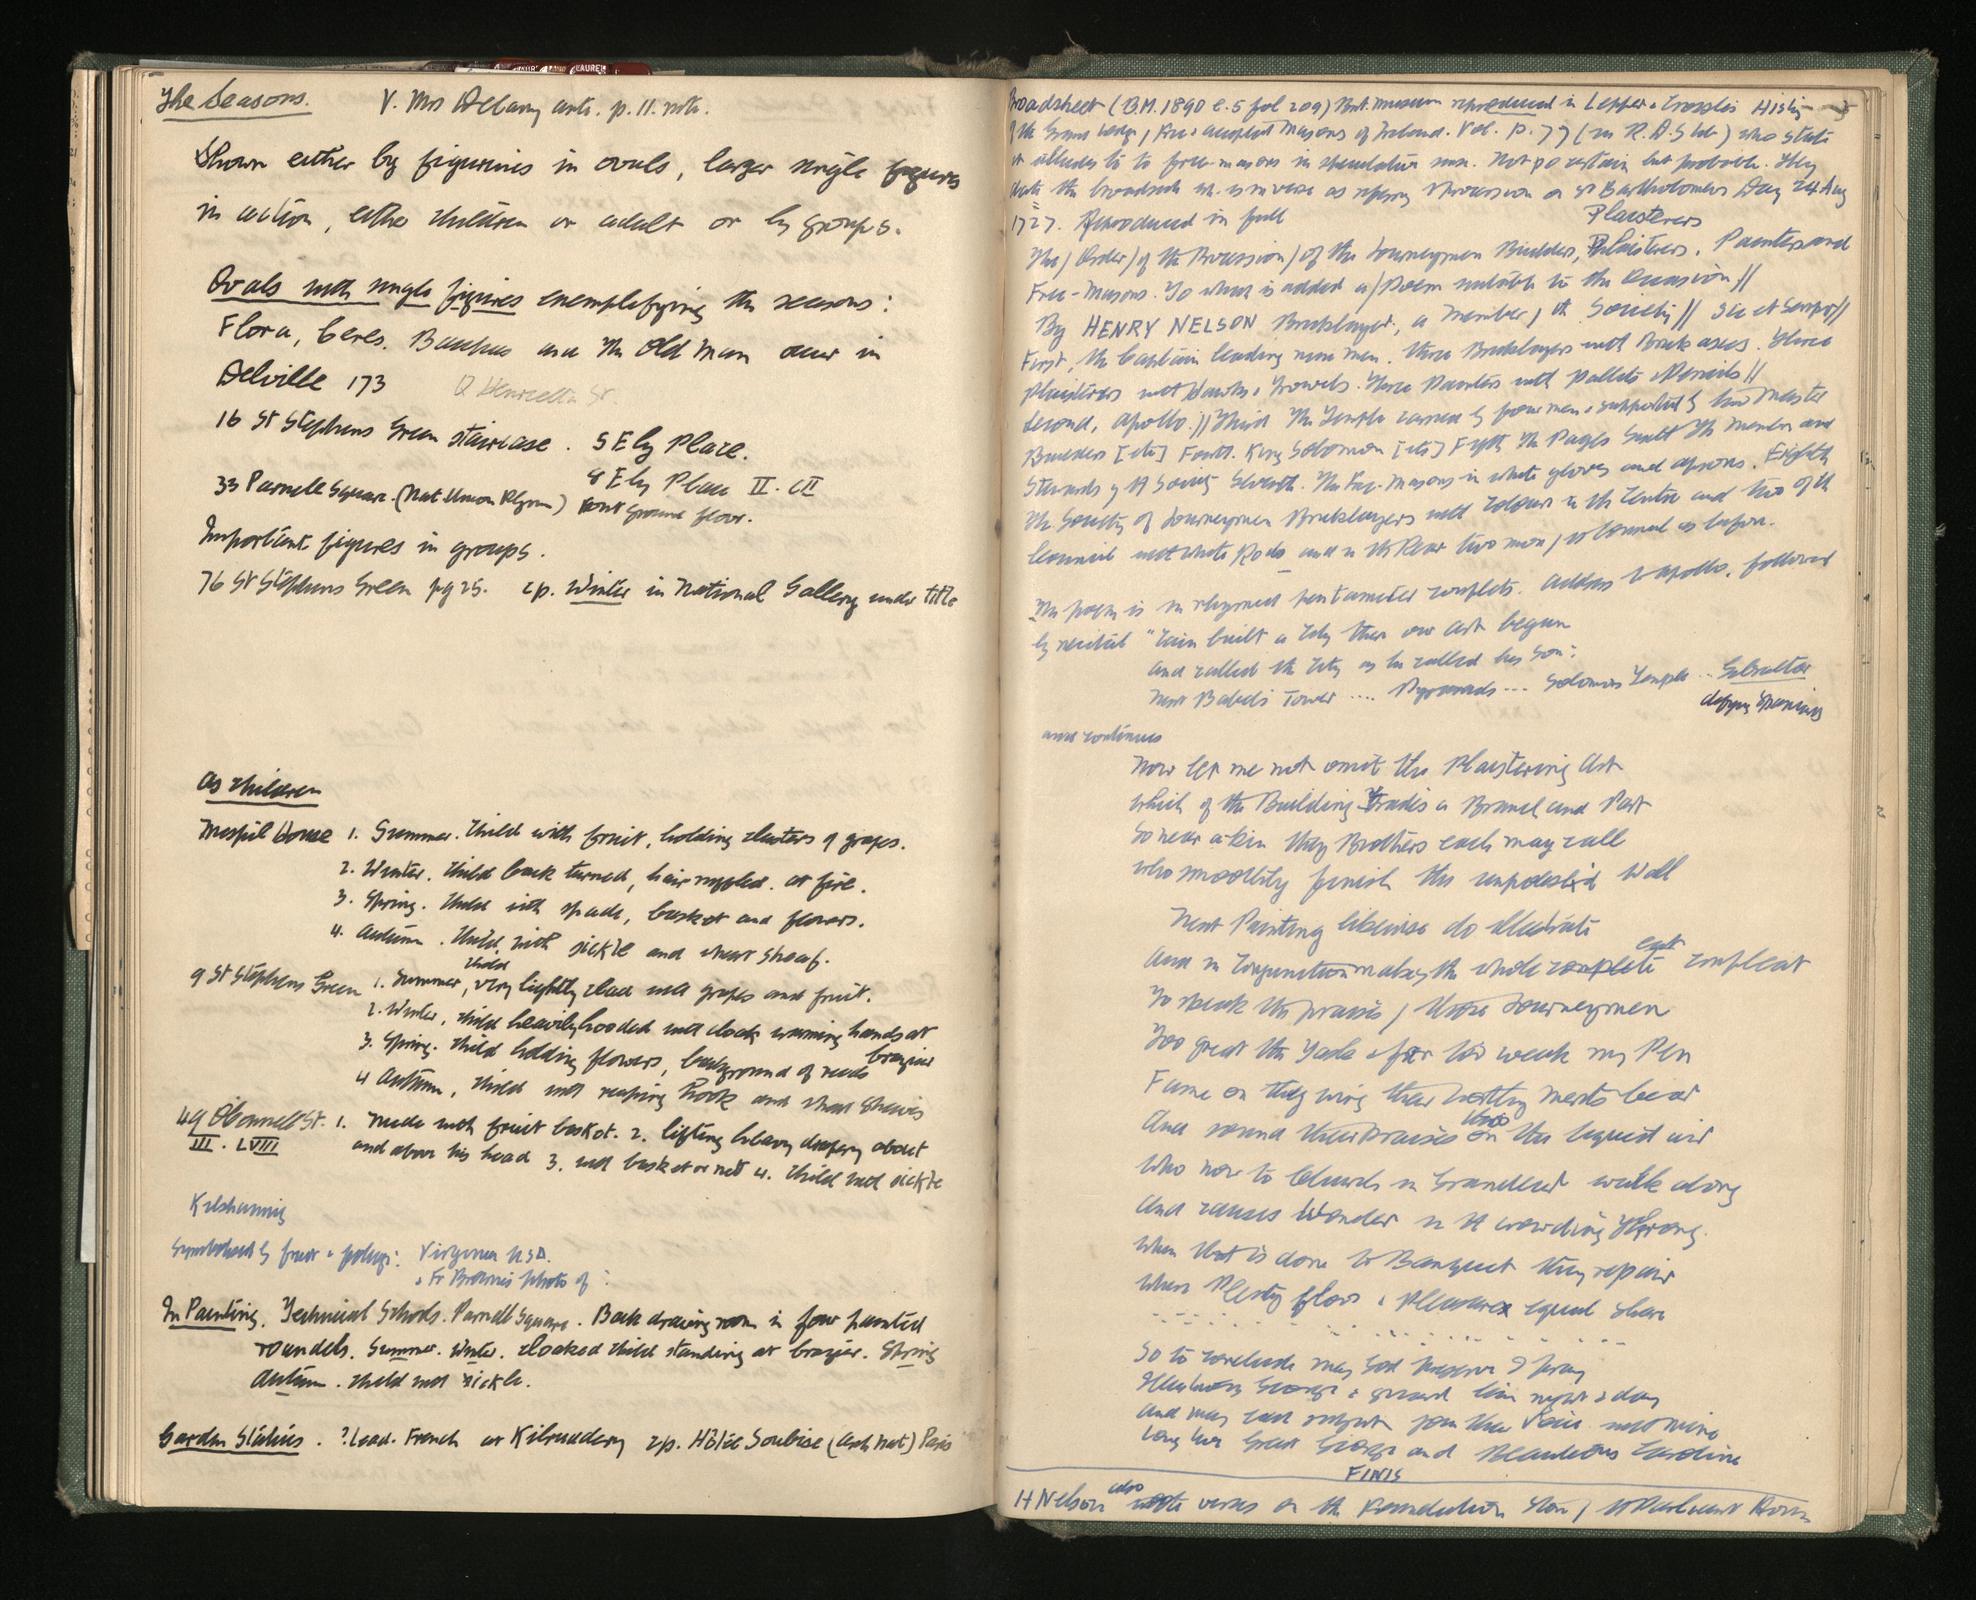 The Seasons. V. Mrs Delany ante. p. 11. note.
Shown either by figurines in ovals, larger single figures
in action, either children or adult or by groups.
Ovals with single figures exemplifying the seasons:
Flora, Ceres. Bacchus and the Old Man occur in
Delville 173 Q Henrietta St.
16 St Stephens Green staircase. 5 Ely Place.
33 Parnell Square. (Nat Union) 8 Ely Place II. CII
front ground floor.
Important figures in groups.
76 St Stephens Green pg 25. cp. Winter in National Gallery under title
As children
Mespil House 1. Summer. Child with fruit, holding clusters of grapes.
2. Winter. Child back turned, hair rippled. at fire.
3. Spring. Child with spade, basket and flowers.
4. Autumn. Child with sickle and wheat sheaf.
9 St Stephens Green 1. Summer, child very lightly clad with grapes and fruit.
2. Winter, child heavily hooded with cloak warming hands at
brazier
3. Spring. Child holding flowers, background of reeds
4 Autumn, child with reaping hook and wheat sheaves
49 OConnell St. 1. Nude with fruit basket. 2. lifting heavy drapery about
III. LVIII and above his head 3. with basket or net 4. Child with sickle
Kilshannig
Symbolised by fruit & foliage: Virginia USA.
& Fr Brownes photo of:
In Painting. Technical Schools. Parnell Square. Back drawing room in four painted
roundels. Summer. Winter. cloaked child standing at brazier. Spring
Autumn. Child with sickle.
Garden Statues. ? Lead. French at Kilruddery cp. Hôtel Soubise (Arch Nat) Paris
Broadsheet (B.M. 1890 e.5 fol 209) Brit. Museum reproduced in Lepper & Crosslé History
of the Grand Lodge of Free & accepted Masons of Ireland. Vol. p. 77 (in R.D.S lib) who state
it alludes to free-masons in speculative sense. Not so certain but probable. They
date the broadside wh. is in verse as referring Procession on St Bartholomews Day 24 Aug
1727. Reproduced in full
Plaisterers
The/ Order/ of the Procession/ of the Journeymen Builders, Plaisterers, Painters and
Free-Masons. To which is added a/ Poem suitable to the Occasion//
By HENRY NELSON Bricklayer, a Member of the Society// Sic et Semper//
First, the Captain leading nine men. three Bricklayers with Brick axes. Three
Plaisterers with Hawks & Trowels. Three Painters with Pallets & Pencils//
Second, Apollo.// Third The Temple carried by four men & supported by two Master
Builders [etc] Fourth. King Solomon [etc] Fyfth The Pages Sixth The members and
Stewards of the Society Seventh. The Free-Masons in white gloves and aprons. Eighth
The Society of Journeymen Bricklayers with Colours in the Centre and two of the
Council with white Rods and in the Rear two men of the Council as before.
The poem is in rhymed pentameter couplets. Address to Apollo, followed
by recital "Cain built a City then our Art begun
And called the City as he called his Son:
Next Babel's Tower .... Pyramids ... Solomons Temple .. Gibraltar
and continues
Now let me not omit the Plaistering Art
which of the Building Trades a Branch and Part
So near a-kin they Brothers each may call
who smoothly finish the unpolish'd Wall
Next Painting likewise do illustrate
eat
And in Conjunction makes the whole complete compleat
To speak the praises of these Journeymen
Too great the Task & far too weak my Pen
Fame on thy wing their worthy Merits bear
thro
And sound their praises on the liquid air
Who now to Church in Grandeur walk along
And causes Wonder in the crowding Throng.
When that is done to Banquet they repair
where Plenty flows & Pleasures equal share
So to conclude may God preserve I pray
Illustrious George & guard him night & day
And may each subject join their Voice with mine
Long live Great George and Beauteous Caroline
FINIS
H Nelson also wrote verses on the Foundation Stone of the Parliament House